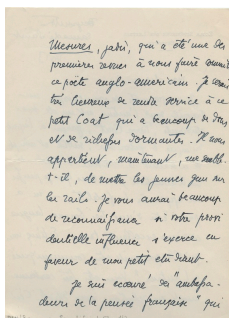 Mesures, jadis, qui a été une des
premières revues à nous faire connaître
ce poète anglo-américain. Je serais
très heureux de rendre service à ce
petit Coat qui a beaucoup de dons
et de richesses dormantes. Il nous
appartient, maintenant, me semble-
t-il, de mettre les jeunes gens sur
les rails. Je vous aurai beaucoup
de reconnaissance si votre provi
dentielle influence s'exerce en
faveur de mon petit étudiant.
Je suis écœuré des "ambassa-
deurs de la pensée française" qui